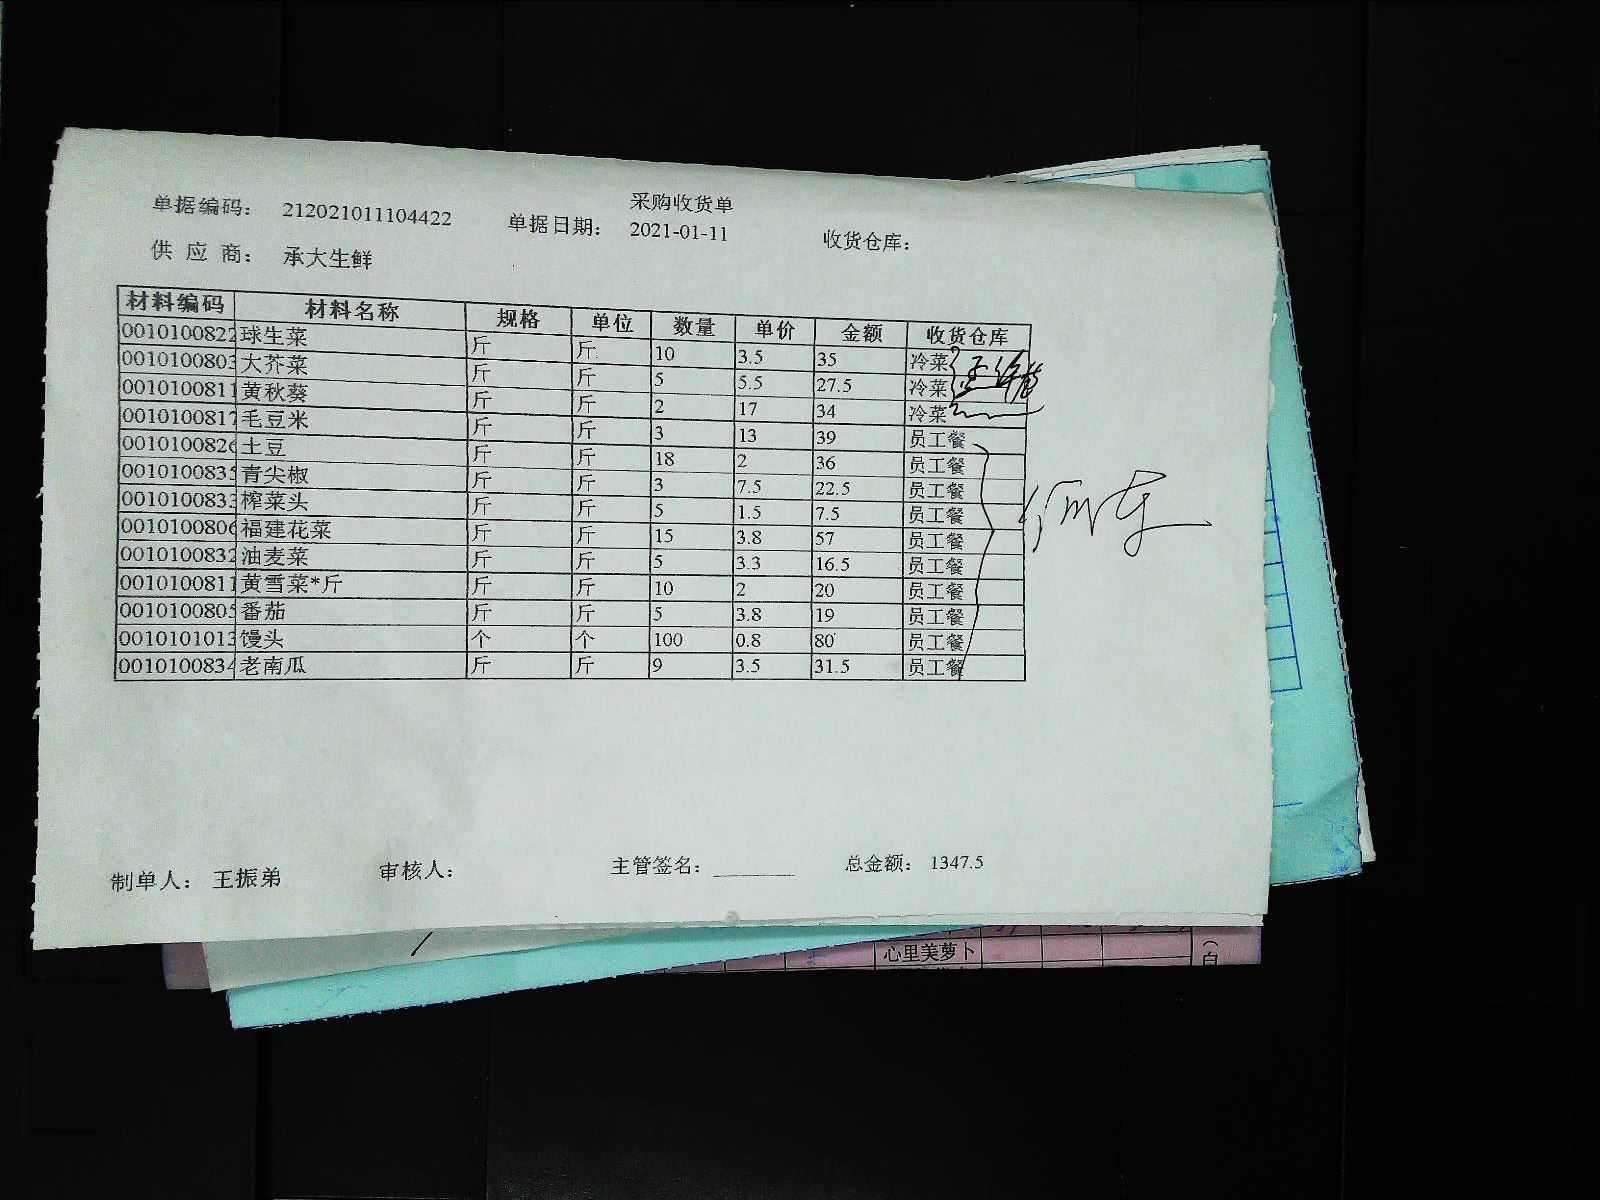 采购收货单
单据编码： 212021011104422 单据日期： 2021-01-11 收货仓库：
供 应 商： 承大生鲜
材料编码 材料名称 规格 单位 数量 单价 金额 收货仓库
0010100822 球生菜 斤 斤 10 3.5 35 冷菜
0010100803 大芥菜 斤 斤 5 5.5 27.5 冷菜
0010100811 黄秋葵 斤 斤 2 17 34 冷菜
0010100817 毛豆米 斤 斤 3 13 39 员工餐
0010100826 土豆 斤 斤 18 2 36 员工餐
0010100835 青尖椒 斤 斤 3 7.5 22.5 员工餐
0010100833 榨菜头 斤 斤 5 1.5 7.5 员工餐
0010100806 福建花菜 斤 斤 15 3.8 57 员工餐
0010100832 油麦菜 斤 斤 5 3.3 16.5 员工餐
0010100811 黄雪菜*斤 斤 斤 10 2 20 员工餐
0010100805 番茄 斤 斤 5 3.8 19 员工餐
0010101013 馒头 个 个 100 0.8 80 员工餐
0010100834 老南瓜 斤 斤 9 3.5 31.5 员工餐
制单人： 王振弟 审核人： 主管签名： 总金额： 1347.5
心里美萝卜